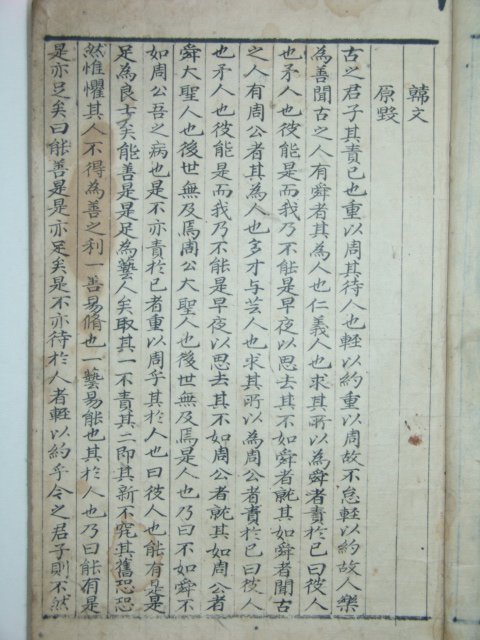 韓文
原毀
古之君子其責已也重以周其待人也輕以約重以周故不怠輕以約故人樂
為善聞古之人有舜者其為人也仁義人也求其所以為舜者責於已曰彼人
也矛人也彼能是而我乃不能是早夜以思去其不如舜者就其如舜者聞古
之人有周公者其為人也多才与芸人也求其所以為周公者責於已曰彼人
也矛人也彼能是而我乃不能是早夜以思去其不如周公者就其如周公者
舜大聖人也後世無及焉周公大聖人也後世無及焉是人也乃曰不如舜不
如周公吾之病也是不亦責於已者重以周乎其於人也曰彼人也能有是是
足為良士矣能善是是足為藝人矣取其一不責其二即其新不究其舊恐恐
然惟懼其人不得為善之利一善易脩也一藝易能也其於人也乃曰能有是
是亦足矣曰能善是是亦足矣是不亦待於人者輕以約乎今之君子則不然